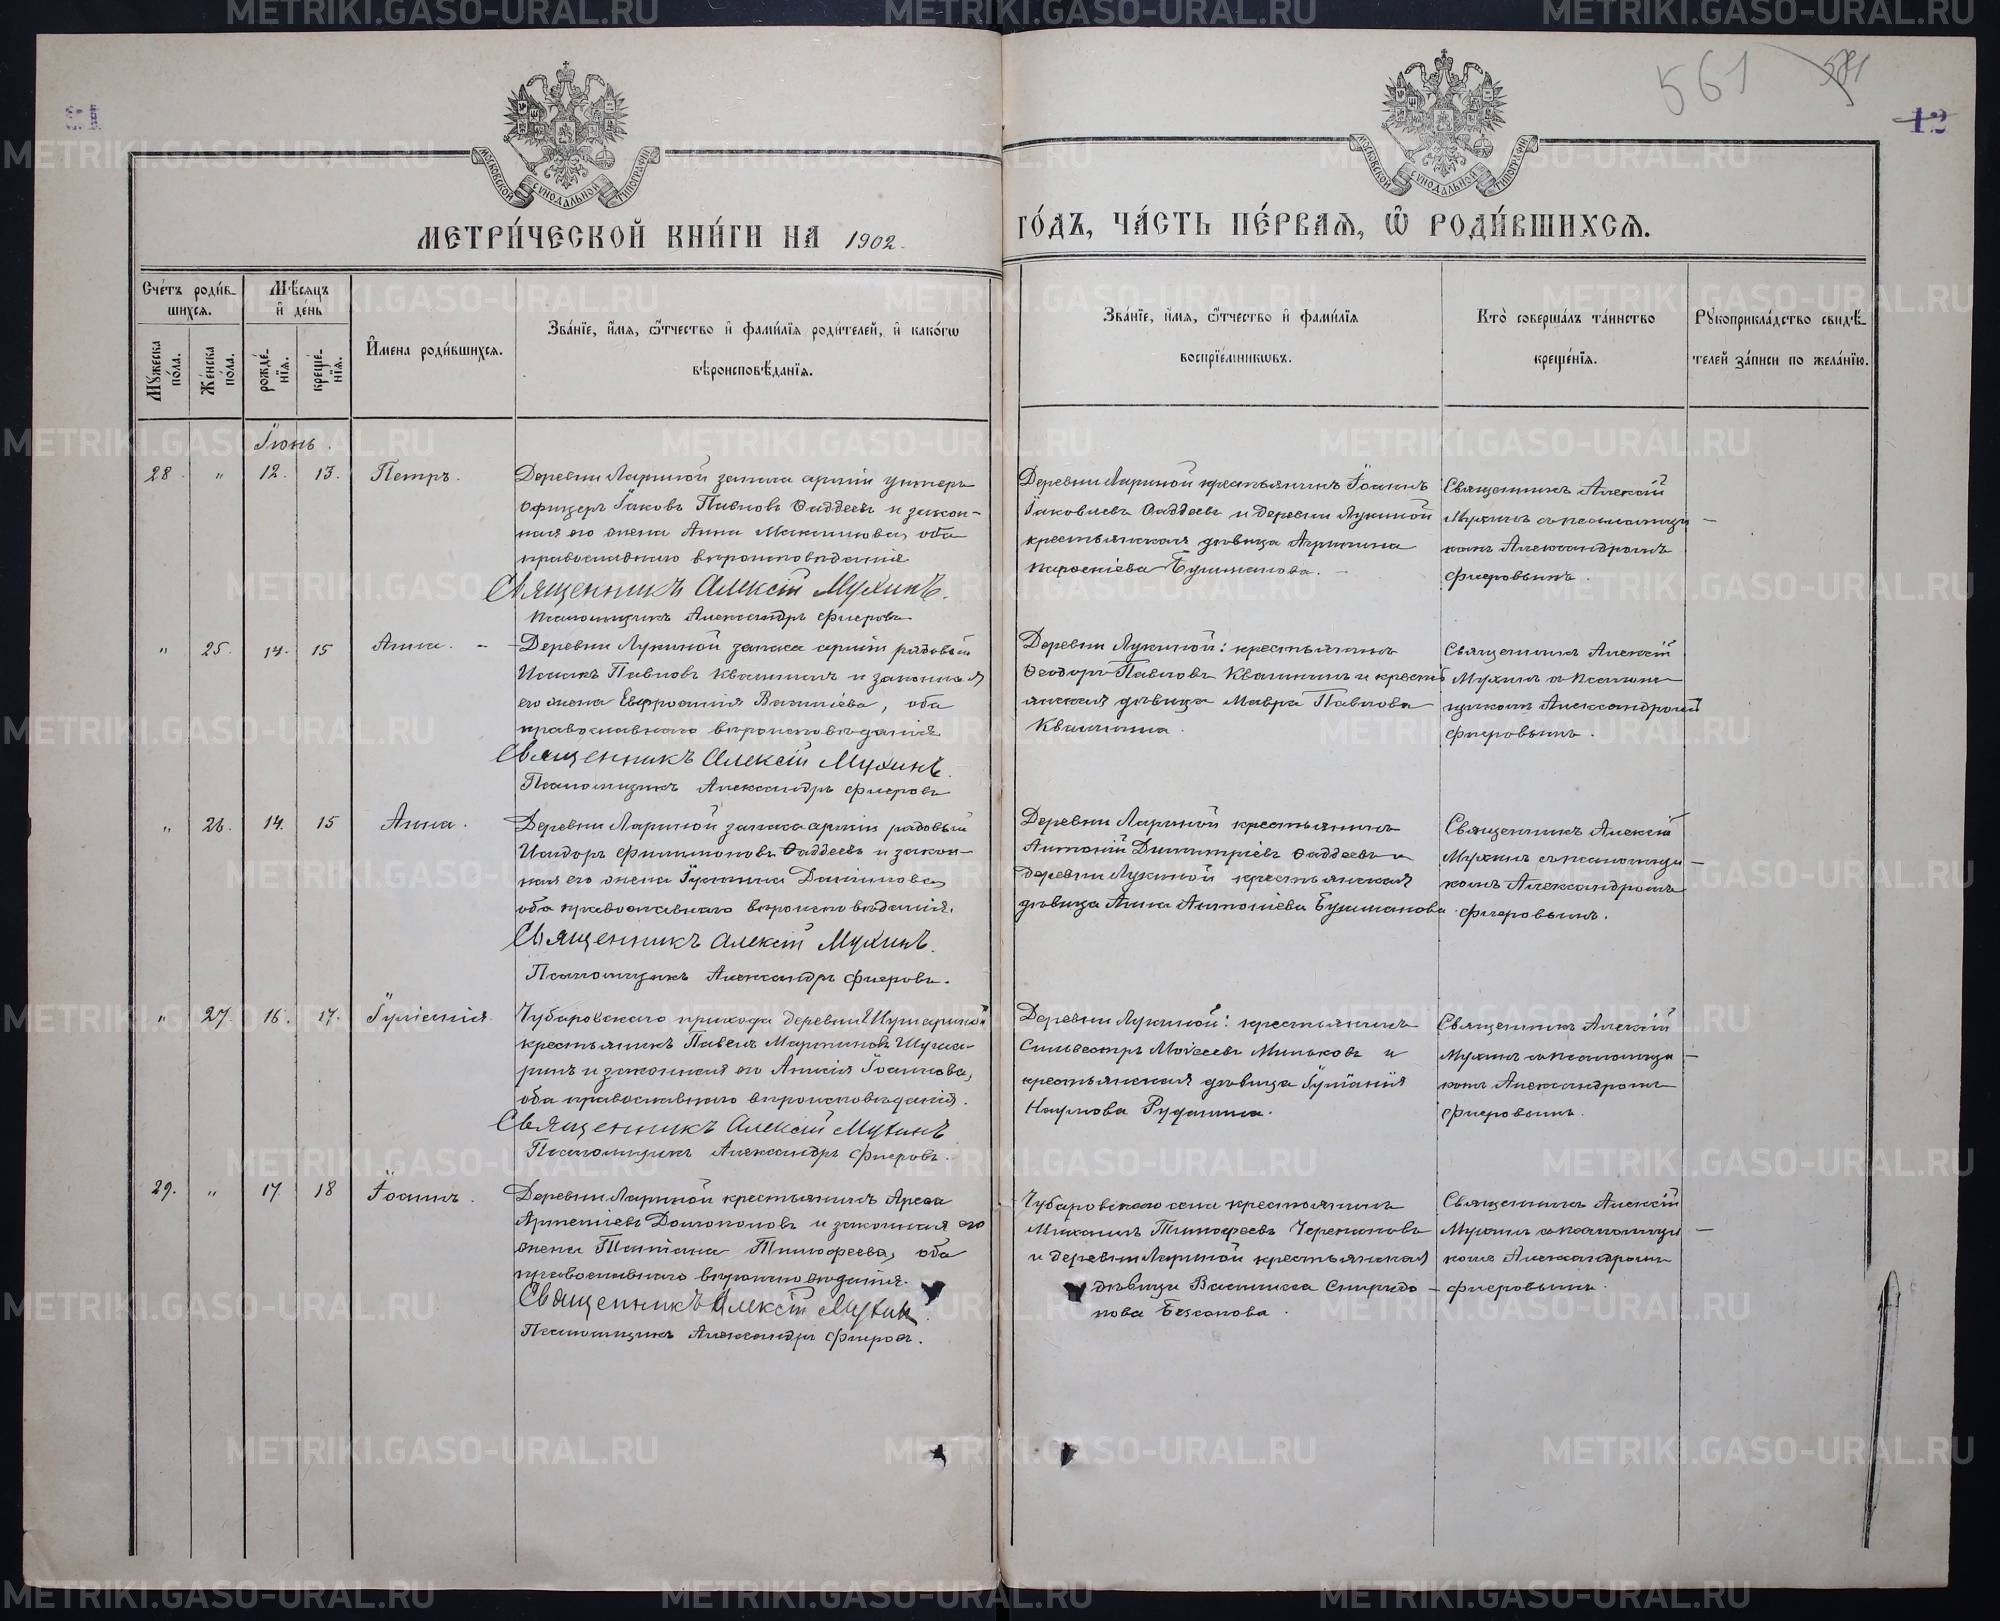 561
12
МОСКОВСКОЙ СѴНОДАЛЬНОЙ ТИПОГРАФІИ
МОСКОВСКОЙ СѴНОДАЛЬНОЙ ТИПОГРАФІИ
МЕТРИ́ЧЕСКОЙ КНИ́ГИ НА 1902.
ГО́ДЪ, ЧА́СТЬ ПЕ́РВАЯ, Ѿ РОДИ́ВШИХСЯ.
Сче́тъ роди́в-
шихся.
Мѣ́сяцъ
и де́нь
Му́жеска по́ла.
Же́нска по́ла.
рожде́-нїя.
креще́-нїя.
И҆мена̀ роди́вшихся.
Зва́нїе, и҆́мя, ѻ҆́тчество и҆ фами́лїя роди́телей, и҆ како́гѡ
вѣроисповѣ́данїя.
Зва́нїе, и҆́мя, ѻ҆́тчество и҆ фами́лїя
воспрїе́мникѡвъ.
Кто̀ соверша́лъ та́инство
креще́нїя.
Рꙋкоприкла́дство свидѣ́-
телей за́писи по жела́нїю.
Іюнь.
28. " 12. 13. Петръ.
Деревни Лариной запаса арміи унтеръ
офицеръ Іаковъ Павловъ Ѳаддеевъ и закон-
ная его жена Анна Максимова, оба
православнаго вѣроисповѣданія
Священникъ Алексій Мухинъ.
Псаломщикъ Александръ Фиеровъ
Деревни Лариной крестьянинъ Іоаннъ
Іаковлевъ Ѳаддеевъ и деревни Лукиной
крестьянская дѣвица Агрипина
Бушманова.
Священникъ Алексій
Мухинъ съ псаломщи-
комъ Александромъ
Фиеровымъ.
" 25. 14. 15 Анна.
Деревни Лукиной запаса арміи рядовый
Исаакъ Павловъ Квашнинъ и законная
его жена Евфросинія Васильева, оба
православнаго вѣроисповѣданія
Священникъ Алексій Мухинъ.
Псаломщикъ Александръ Фиеровъ
Деревни Лукиной: крестьянинъ
Ѳеодоръ Павловъ Квашнинъ и кресть-
янская дѣвица Мавра Павлова
Квашнина.
Священникъ Алексій
Мухинъ съ псалом-
щикомъ Александромъ
Фиеровымъ.
" 26. 14. 15 Анна.
Деревни Лариной запаса арміи рядовый
Исидоръ Филимоновъ Ѳаддеевъ и закон-
ная его жена Іустина Даніилова,
оба православнаго вѣроисповѣданія.
Священникъ Алексій Мухинъ.
Псаломщикъ Александръ Фиеровъ.
Деревни Лариной крестьянинъ
Антоній Димитріевъ Ѳаддеевъ и
деревни Лукиной крестьянская
дѣвица Анна Антоніева Бушманова
Священникъ Алексій
Мухинъ съ псаломщи-
комъ Александромъ
Фиеровымъ.
" 27. 16. 17. Іуліанія.
Чубаровскаго прихода деревни Шугариной
крестьянинъ Павелъ Мартиновъ Шуга-
ринъ и законная его Анисія Іоаннова,
оба православнаго вѣроисповѣданія.
Священникъ Алексій Мухинъ
Псаломщикъ Александръ Фиеровъ.
Деревни Лукиной: крестьянинъ
Сильвестръ Моисеевъ Миньковъ и
крестьянская дѣвица Іуліанія
Наумова Рудакина.
Священникъ Алексій
Мухинъ съ псаломщи-
комъ Александромъ
Фиеровымъ.
29. " 17. 18 Іоаннъ.
Деревни Лариной крестьянинъ Арефа
Артеміевъ Долгополовъ и законная его
жена Татіана Тимофеева, оба
православнаго вѣроисповѣданія.
Священникъ Алексій Мухинъ.
Псаломщикъ Александръ Фиеровъ.
Чубаровскаго села крестьянинъ
Михаилъ Тимофеевъ Черепановъ
и деревни Лариной крестьянская
дѣвица Василиса Спиридо-
нова Безсонова.
Священникъ Алексій
Мухинъ съ псаломщи-
комъ Александромъ
Фиеровымъ.
METRIKI.GASO-URAL.RU